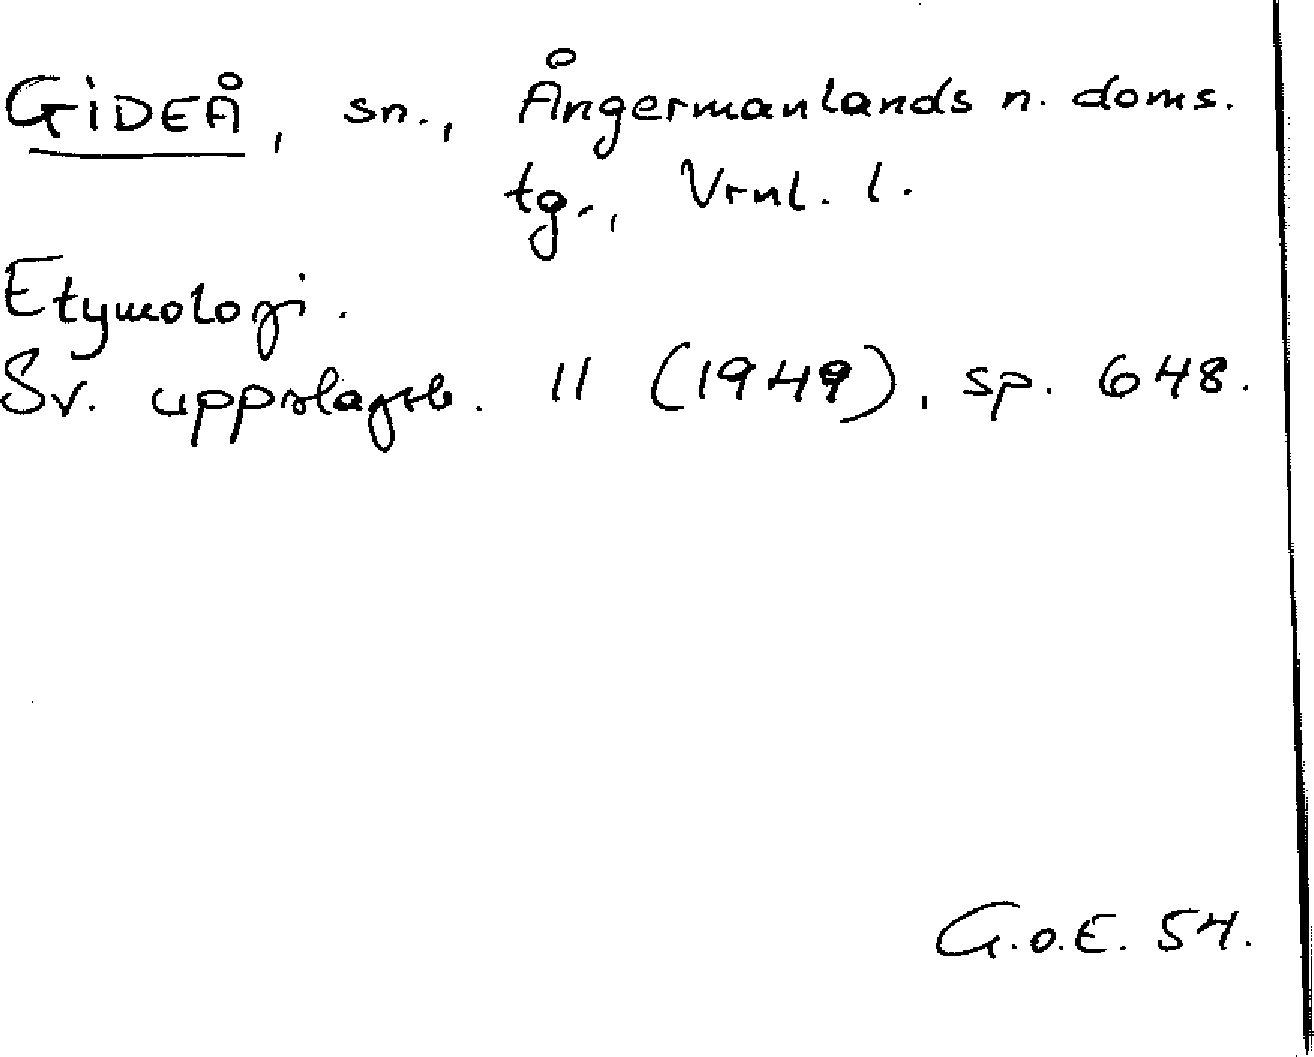 GIDEÅ, sn., Ångermanlands n. doms.
tg., Vrnl. l.
Etymologi.
Sv. uppslagsb. 11 (1949), sp. 648.
G.o.E. 54.